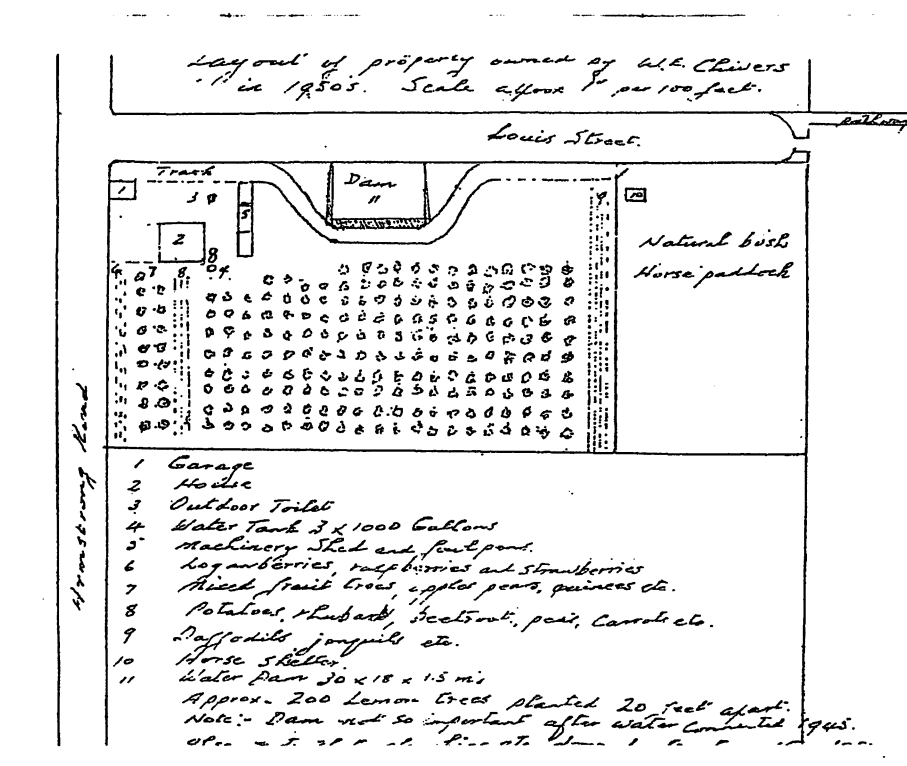 Layout of property owned by W.E. Chivers
in 1950's. Scale approx 1" per 100 feet.
pathway
Louis Street.
Track
Dam
11
1
3
5
9
10
2
8
Natural bush
Horse paddock
4 7 8 4
Armstrong Road
1 Garage
2 House
3 Outdoor Toilet
4 Water Tank 3 x 1000 Gallons
5 Machinery Shed and fowl pens.
6 Loganberries, raspberries and strawberries
7 Mixed fruit trees, apples pears, quinces etc.
8 Potatoes, rhubarb, beetroot, peas, Carrots etc.
9 Daffodils, jonquils etc.
10 Horse Shelter.
11 Water Dam 30 x 18 x 1.5 m's
Approx. 200 Lemon trees planted 20 feet apart.
Note:- Dam not so important after water connected